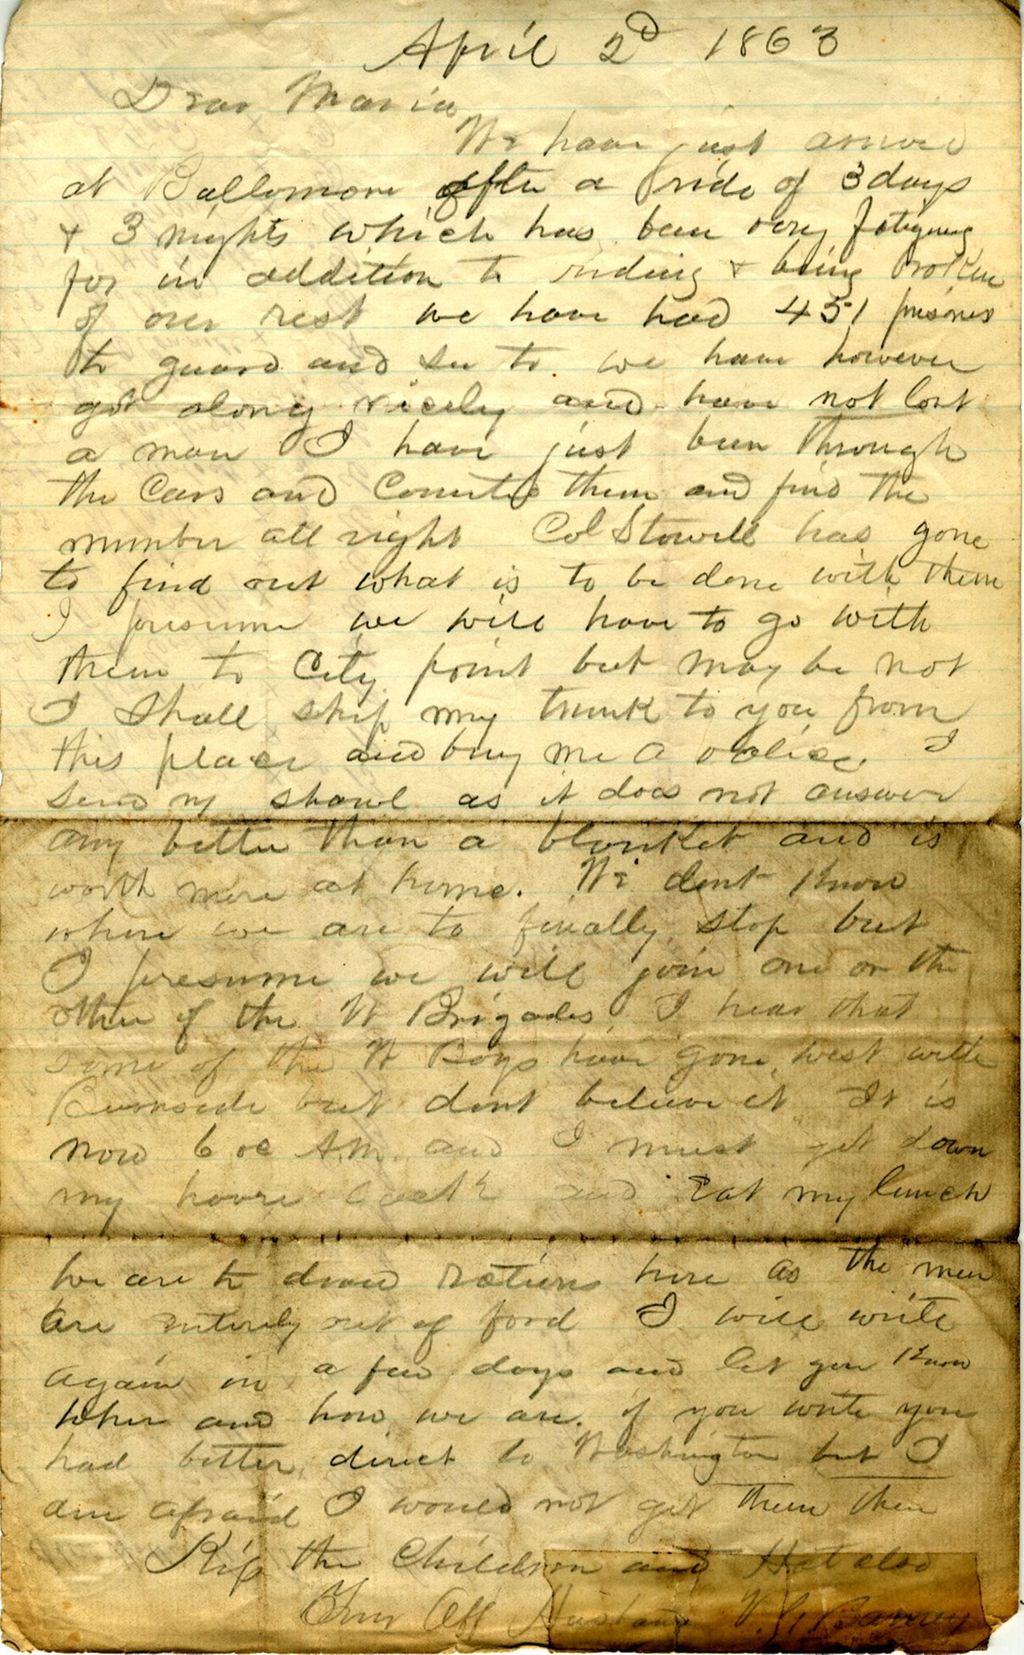 April 2d 1863
Dear Maria
We have just arrived
at Baltimore after a ride of 3 days
& 3 nights which has been very fatiguing
for in addition to riding & being broken
of our rest we have had 451 prisoners
to guard and see to we have however
got along nicely and have not lost
a man I have just been through
the Cars and Counted them and find the
number all right Col Stowell has gone
to find out what is to be done with them
I presume we will have to go with
them to City point but may be not
I Shall ship my trunk to you from
this place and buy me a valise. I
send my shawl as it does not answer
any better than a blanket and is
worth more at home. We dont know
where we are to finally stop but
I presume we will join one or the
other of the Vt Brigades, I hear that
some of the Vt Boys have gone west with
Burnside but dont believe it It is
now 6 oc A.M. and I must get down
my and Eat my lunch
We are to draw rations here as the men
are entirely out of food I will write
again in a few days and let you know
where and how we are. if you write you
had better direct to Washington but I
am afraid I would not get them then
Kiss the Children and Hat also
Your Aff Husband V. G. Barney